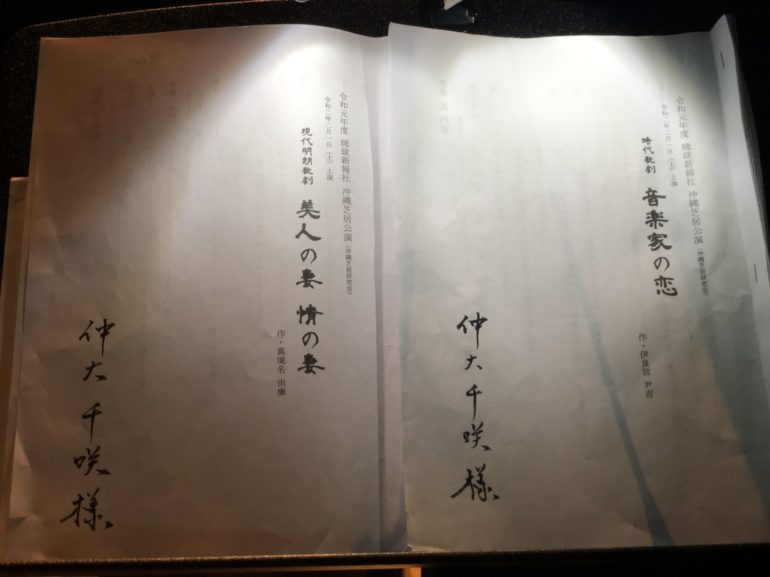 令和元年度 琉球新報社 沖縄芝居公演(沖縄芝居研究会)
令和二年二月一日(土)上演
時代歌劇 音楽家の恋
作・伊良波 尹吉
仲大 千咲様
令和元年度 琉球新報社 沖縄芝居公演(沖縄芝居研究会)
令和二年二月一日(土)上演
現代明朗歌劇 美人の妻 情の妻
作・真境名 由康
仲大 千咲様